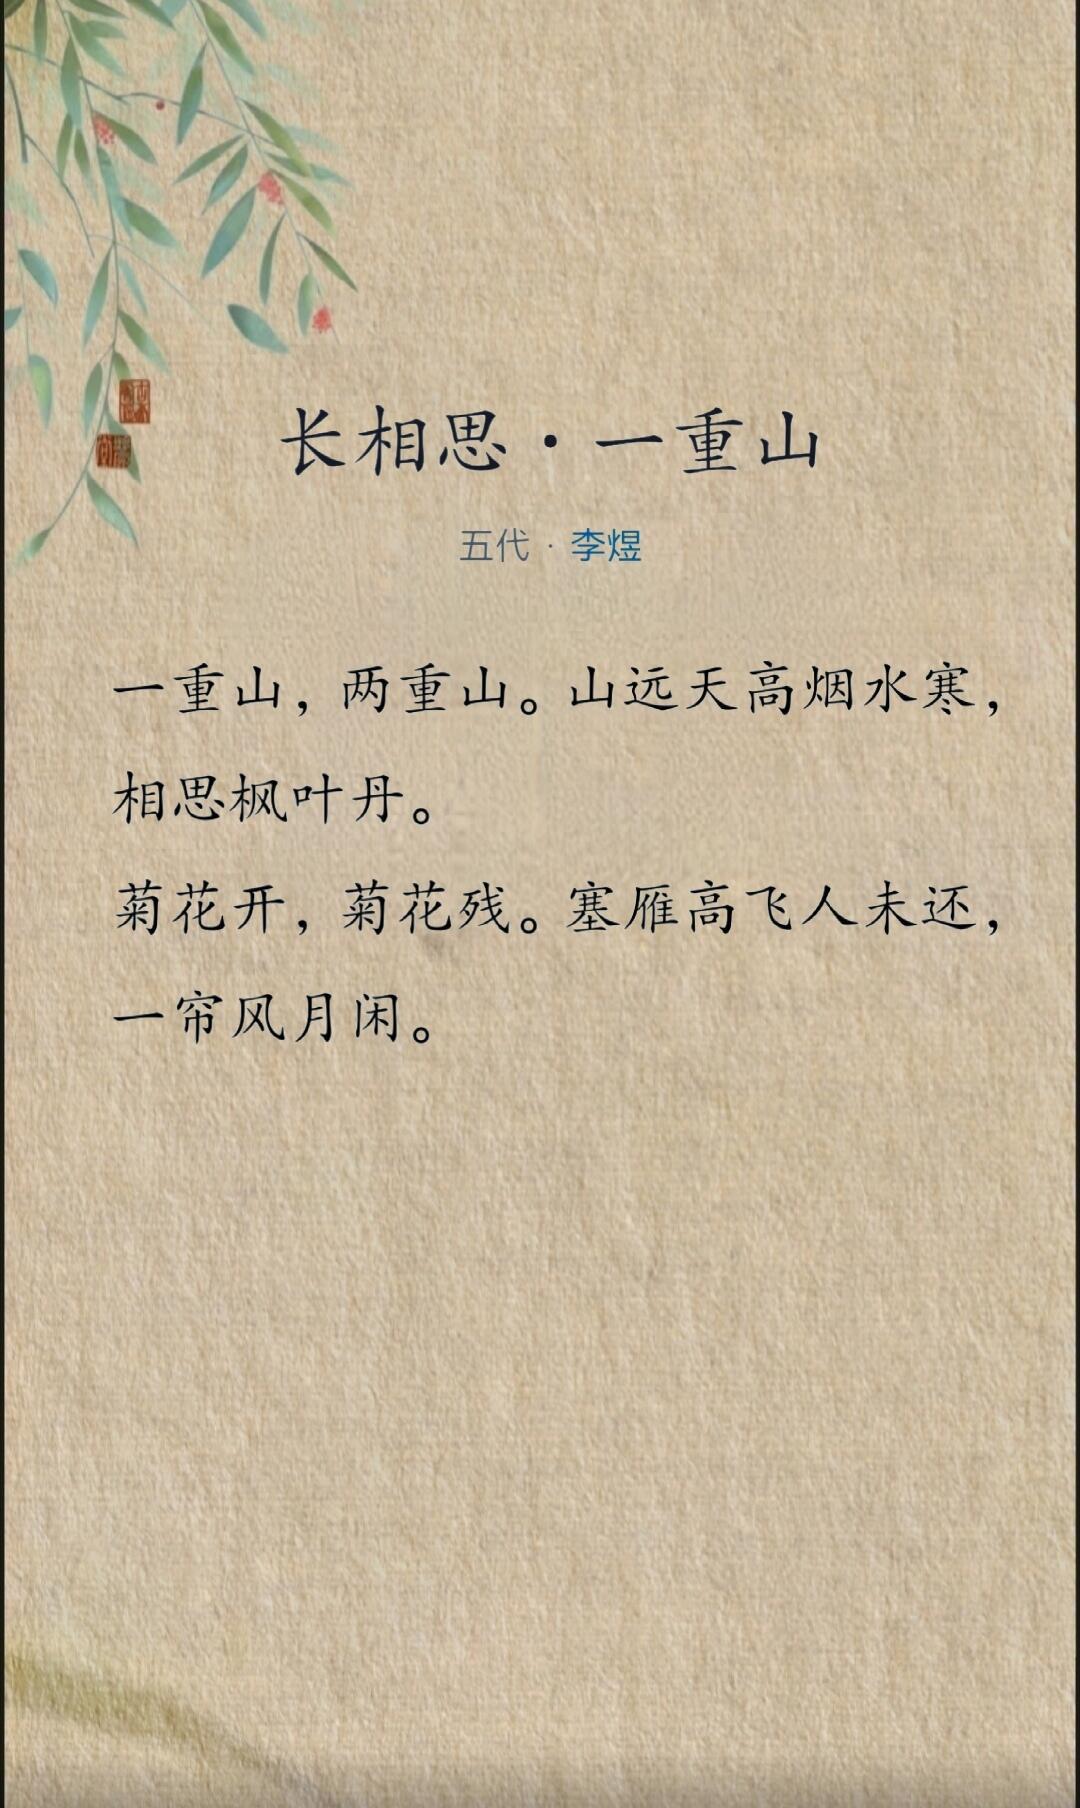 长相思·一重山
五代 · 李煜
一重山，两重山。山远天高烟水寒，
相思枫叶丹。
菊花开，菊花残。塞雁高飞人未还，
一帘风月闲。